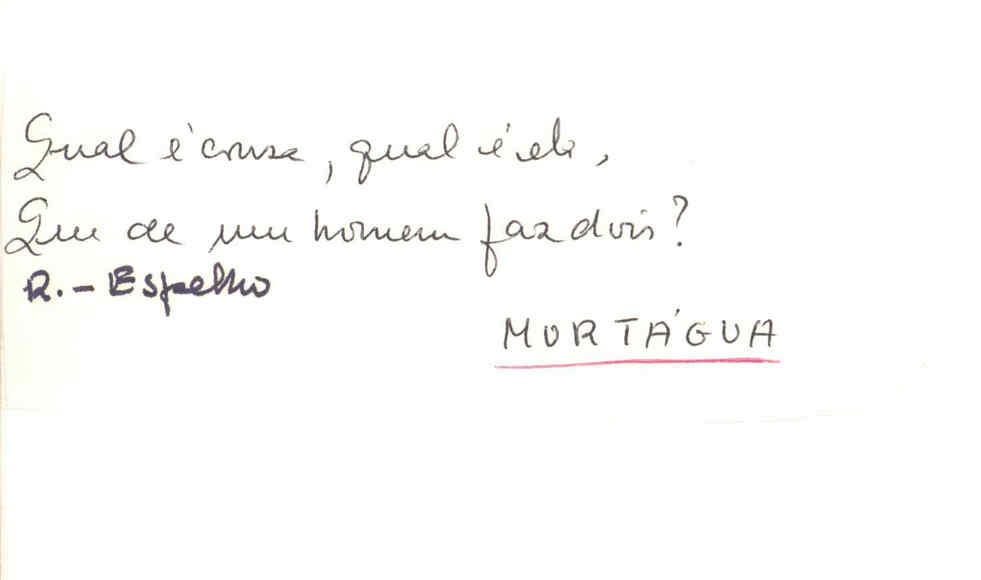 Qual é cousa, qual é ela,
Que de um homem faz dois?
R. - Espelho
MORTÁGUA